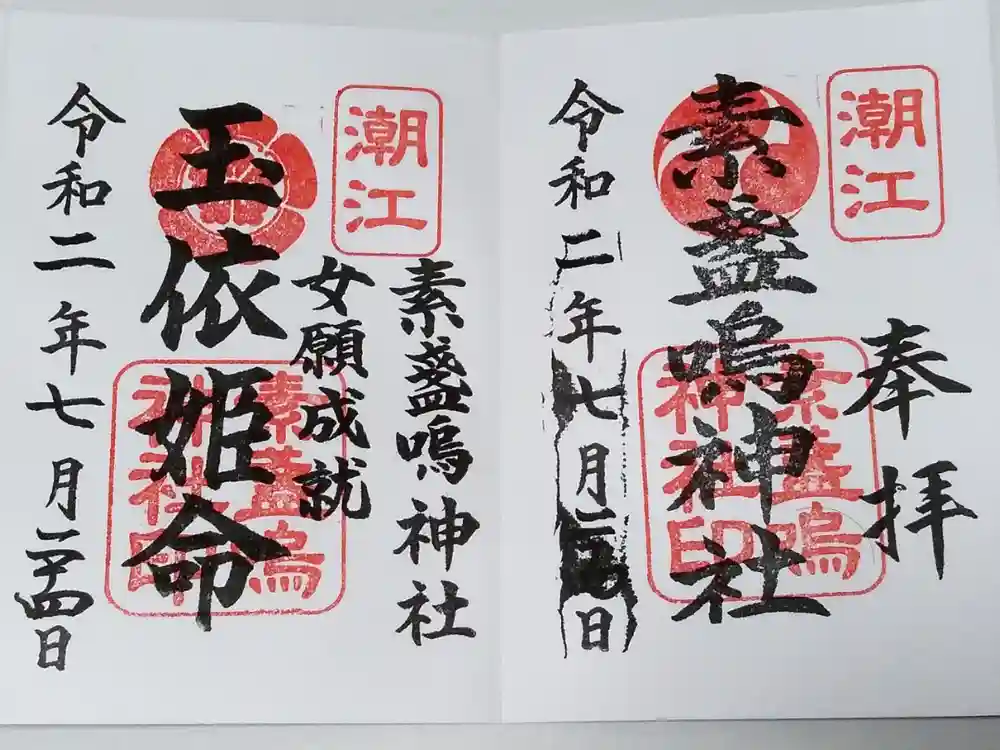 潮江
奉拝
素盞嗚神社
素盞嗚
神社印
令和二年七月日
潮江
素盞嗚神社
女願成就
玉依姫命
素盞嗚
神社印
令和二年七月二十四日